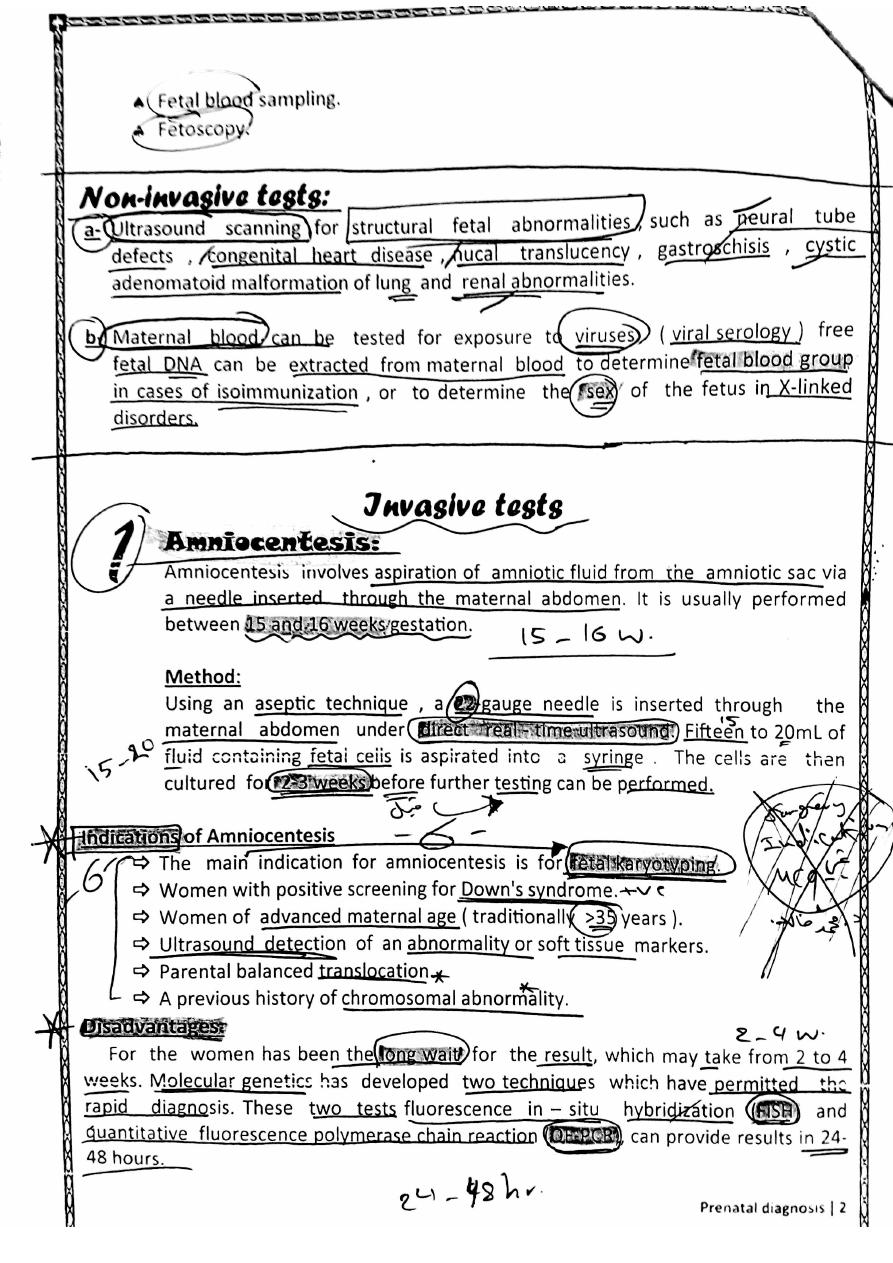 Fetal blood sampling.
Fetoscopy.
Non-invasive tests:
a- Ultrasound scanning for structural fetal abnormalities, such as neural tube
defects , congenital heart disease , nucal translucency , gastroschisis , cystic
adenomatoid malformation of lung and renal abnormalities.
b- Maternal blood can be tested for exposure to viruses ( viral serology ) free
fetal DNA can be extracted from maternal blood to determine fetal blood group
in cases of isoimmunization , or to determine the sex of the fetus in X-linked
disorders.
Invasive tests
1
Amniocentesis:
Amniocentesis involves aspiration of amniotic fluid from the amniotic sac via
a needle inserted through the maternal abdomen. It is usually performed
between 15 and 16 weeks gestation.
15 - 16 w.
Method:
Using an aseptic technique , a 22-gauge needle is inserted through the
maternal abdomen under direct real-time ultrasound. Fifteen to 20mL of
15
15-20
fluid containing fetal cells is aspirated into a syringe . The cells are then
cultured for 2-3 weeks before further testing can be performed.
قبل
Indications of Amniocentesis
- 6 -
6
⇒ The main indication for amniocentesis is for fetal karyotyping.
⇒ Women with positive screening for Down's syndrome. +ve
⇒ Women of advanced maternal age ( traditionally >35 years ).
⇒ Ultrasound detection of an abnormality or soft tissue markers.
⇒ Parental balanced translocation
⇒ A previous history of chromosomal abnormality.
Disadvantages:
2-4 w.
For the women has been the long wait for the result, which may take from 2 to 4
weeks. Molecular genetics has developed two techniques which have permitted the
rapid diagnosis. These two tests fluorescence in – situ hybridization (FISH) and
quantitative fluorescence polymerase chain reaction (QF-PCR) can provide results in 24-
48 hours.
24-48 hr.
Prenatal diagnosis | 2